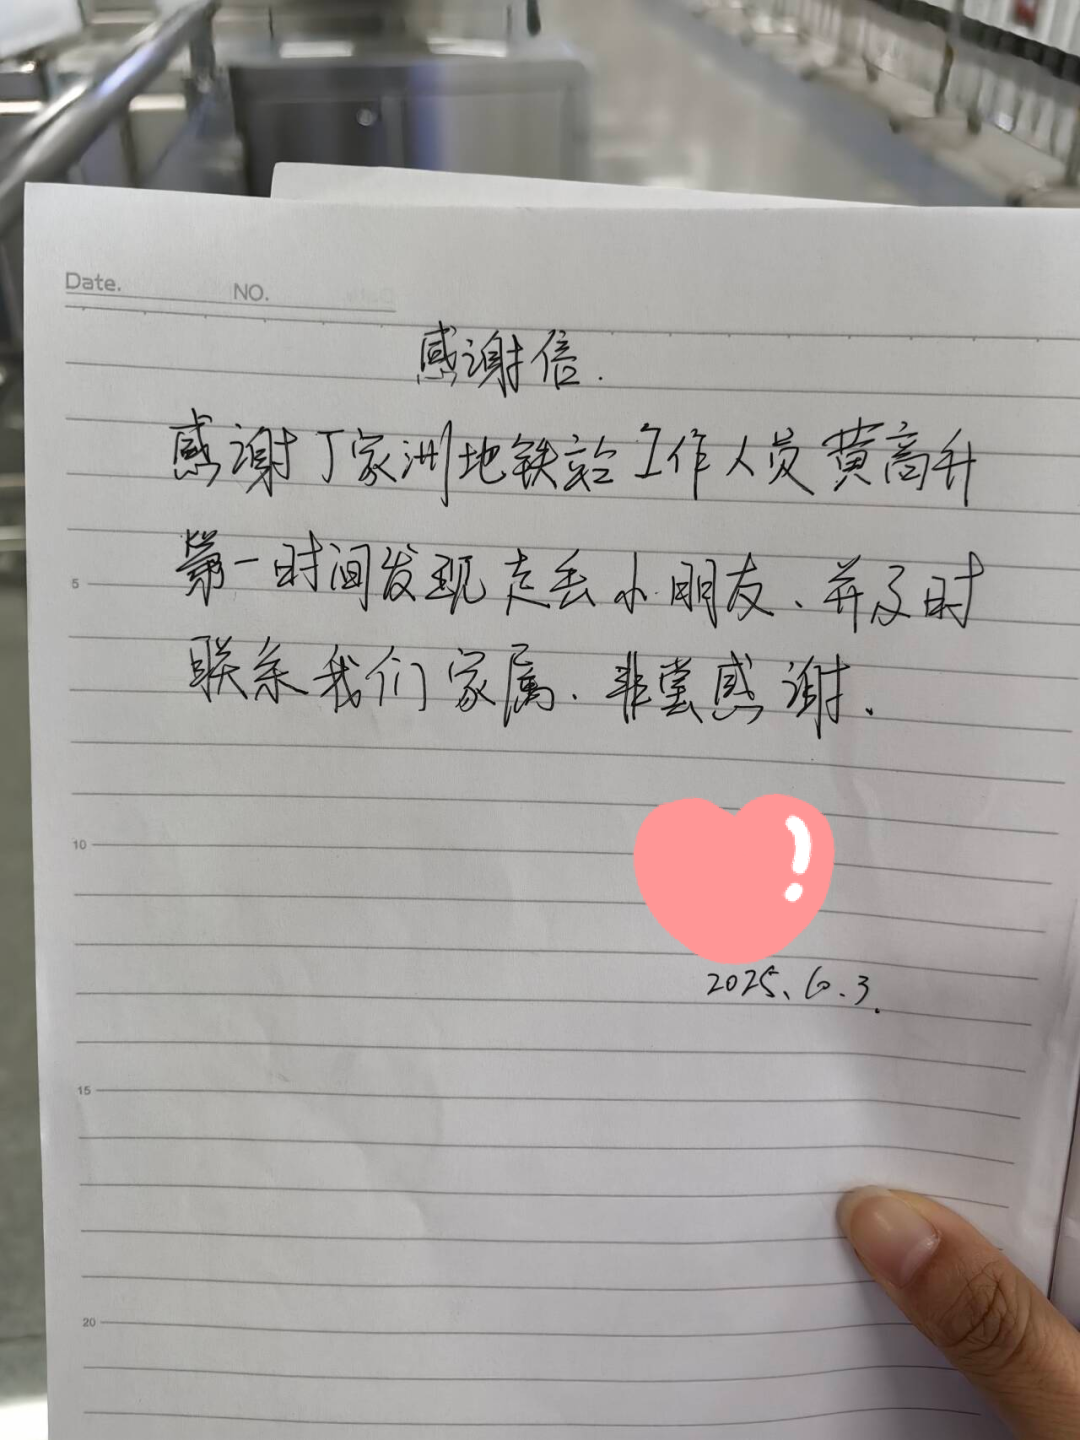 Date.
NO.
感谢信.
感谢丁家洲地铁站工作人员黄高升
第一时间发现走丢小朋友、并及时
联系我们家属、非常感谢.
5
10
2025、6.3.
15
20